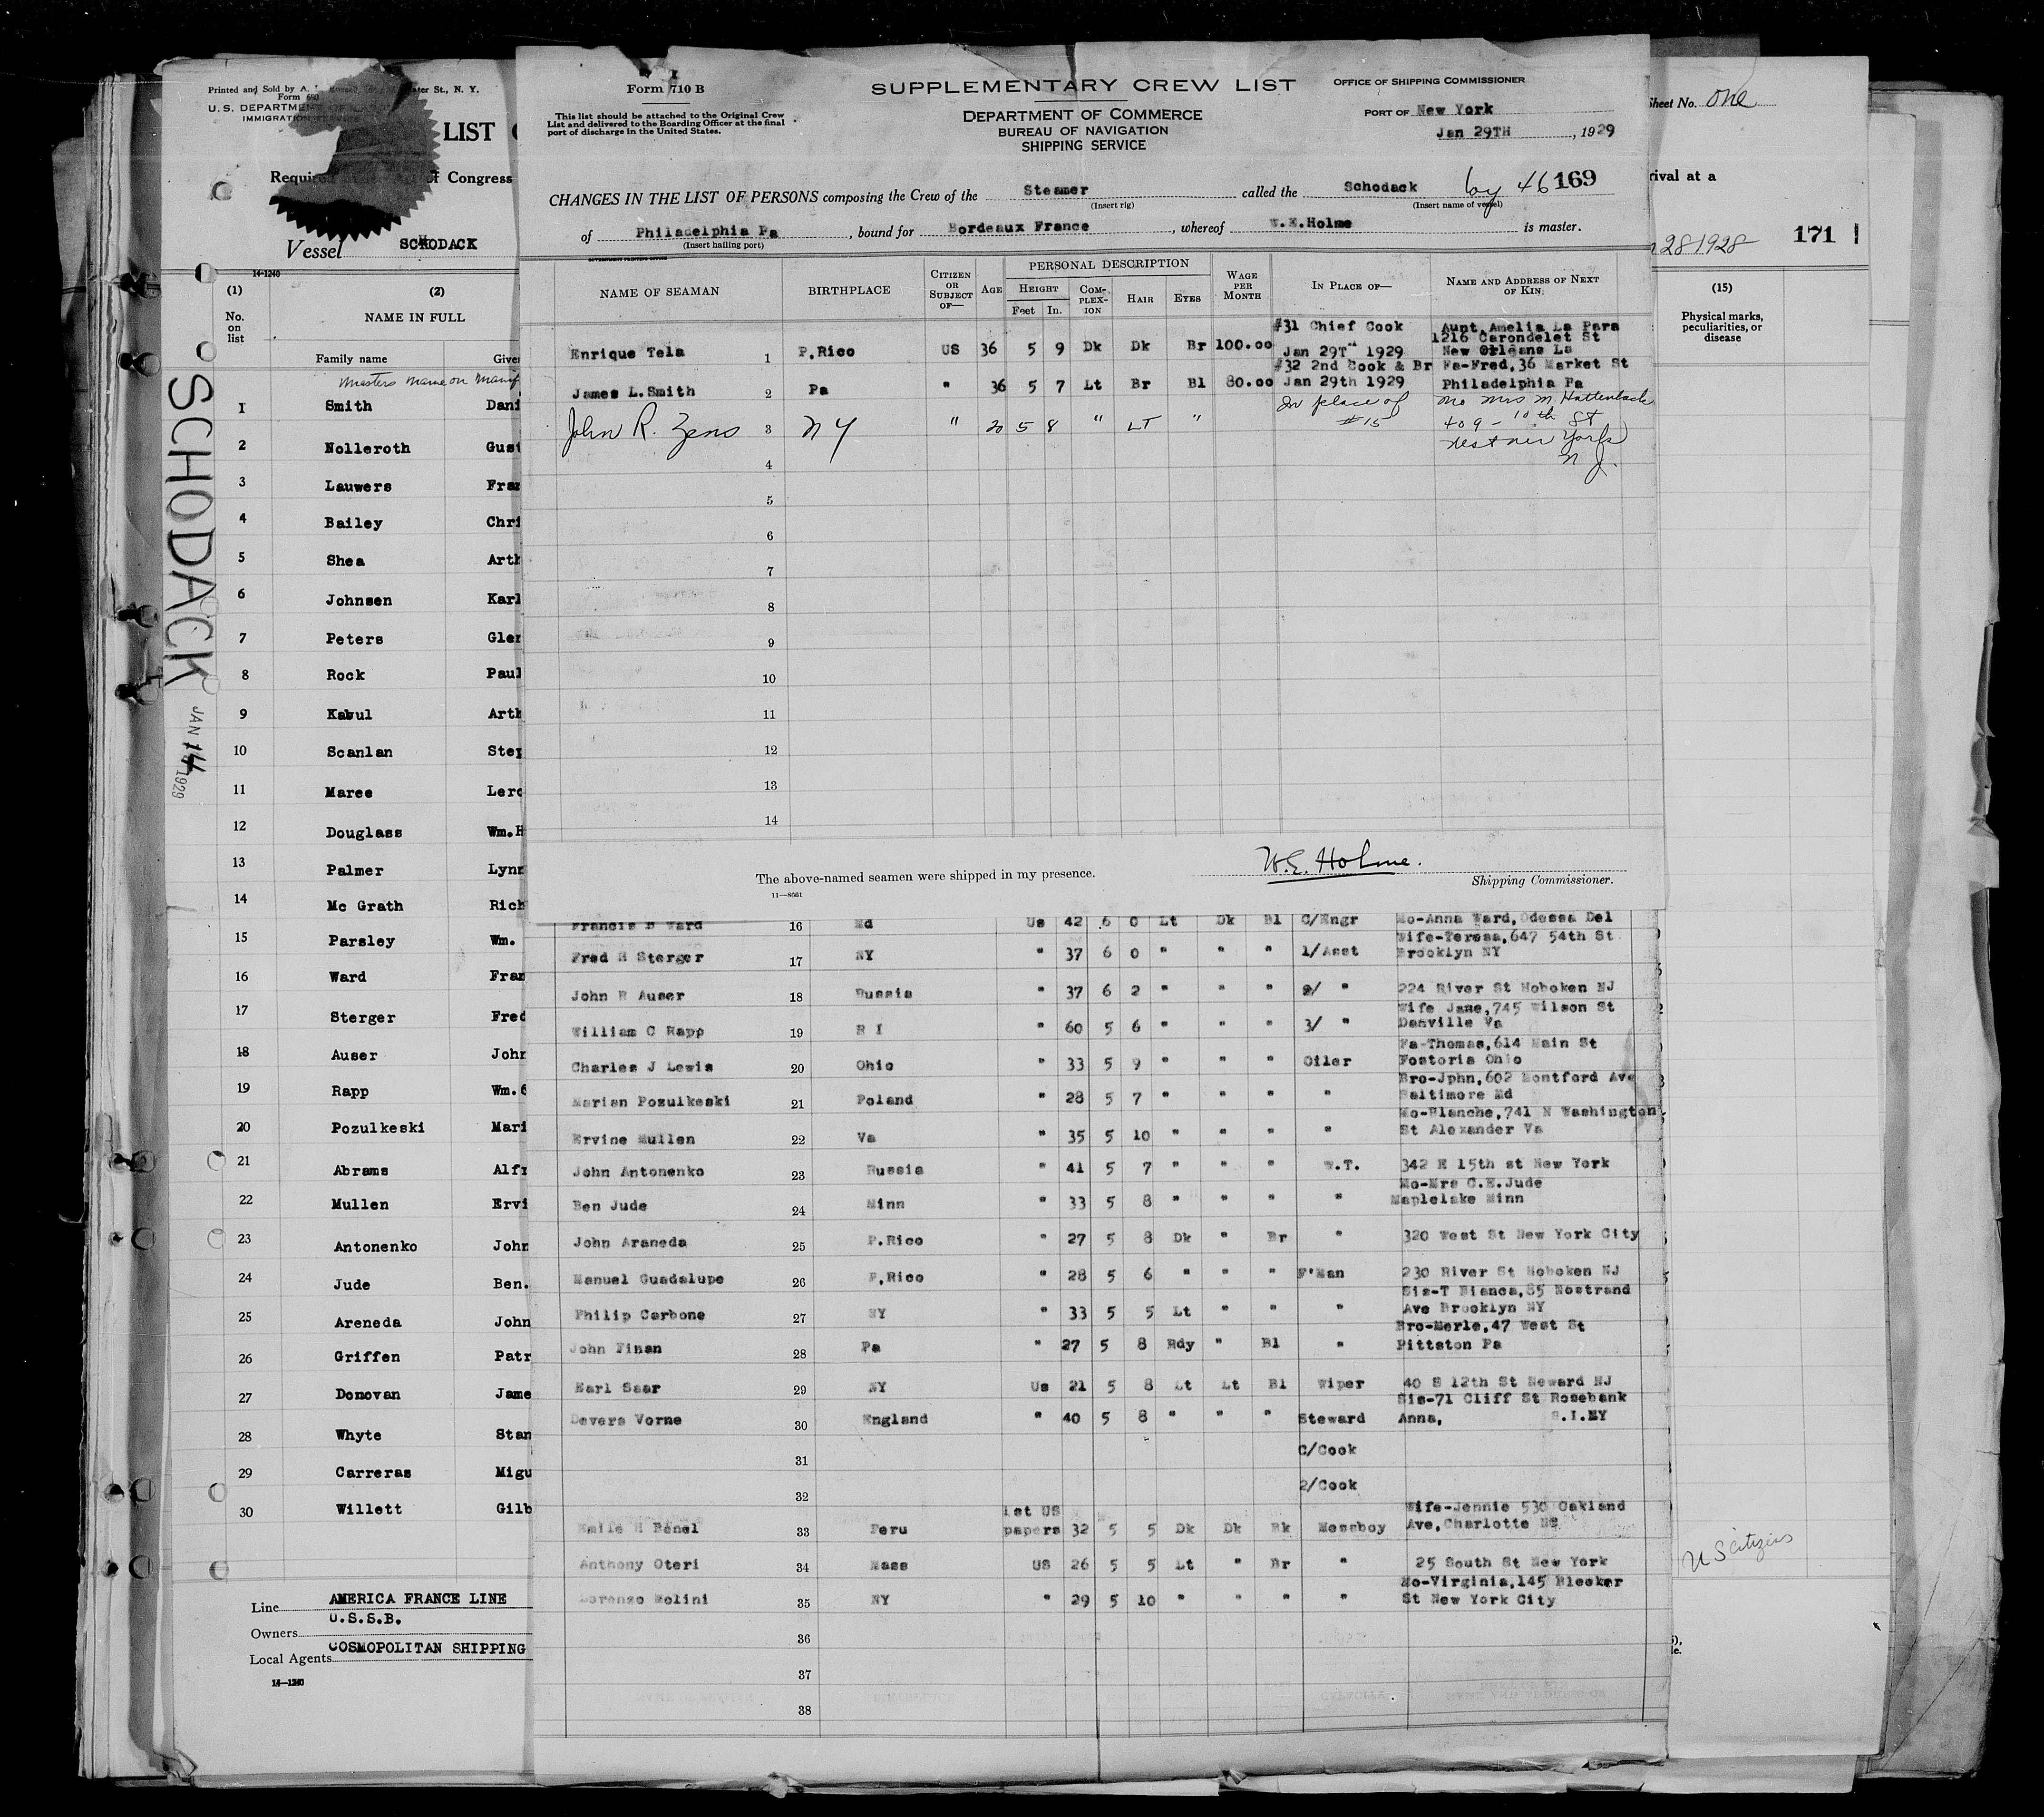 Printed and Sold by A.
ter St., N. Y.
Form 680
U. S. DEPARTMENT OF
IMMIGRATION SERVICE
LIST
Required
of Congress
Vessel SCHODACK
14-1240
(1) (2)
No. on list
NAME IN FULL
Family name Given
Masters name on Manif
1 Smith Dani
2 Nolleroth Gust
3 Lauwers Fran
4 Bailey Chri
5 Shea Arth
6 Johnsen Karl
7 Peters Glen
8 Rock Paul
9 Kabul Arth
10 Scanlan Step
11 Maree Lero
12 Douglass Wm.H
13 Palmer Lynn
14 Mc Grath Rich
15 Parsley Wm.
16 Ward Fran
17 Sterger Fred
18 Auser John
19 Rapp Wm.C
20 Pozulkeski Mari
21 Abrams Alfr
22 Mullen Ervi
23 Antonenko John
24 Jude Ben.
25 Areneda John
26 Griffen Patr
27 Donovan Jame
28 Whyte Stan
29 Carreras Migu
30 Willett Gilb
Line AMERICA FRANCE LINE
Owners U.S.S.B.
Local Agents COSMOPOLITAN SHIPPING
14-1240
SCHODACK
JAN 14 1929
Form 710 B
This list should be attached to the Original Crew
List and delivered to the Boarding Officer at the final
port of discharge in the United States.
SUPPLEMENTARY CREW LIST
DEPARTMENT OF COMMERCE
BUREAU OF NAVIGATION
SHIPPING SERVICE
OFFICE OF SHIPPING COMMISSIONER
PORT OF New York
Jan 29TH, 1929
CHANGES IN THE LIST OF PERSONS composing the Crew of the Steamer called the Schodack
(Insert rig) (Insert name of vessel)
46 169
of Philadelphia Pa, bound for Bordeaux France, whereof W.E.Holme is master.
(Insert hailing port)
GOVERNMENT PRINTING OFFICE
NAME OF SEAMAN BIRTHPLACE CITIZEN OR SUBJECT OF— AGE PERSONAL DESCRIPTION HEIGHT Feet In. COMPLEXION HAIR EYES WAGE PER MONTH IN PLACE OF— NAME AND ADDRESS OF NEXT OF KIN.
#31 Chief Cook Aunt Amelia La Para
1216 Carondelet St
Enrique Tela 1 P.Rico US 36 5 9 Dk Dk Br 100.00 Jan 29T" 1929 New Orleans La
#32 2nd Cook & Br Fa-Fred,36 Market St
James L.Smith 2 Pa " 36 5 7 Lt Br Bl 80.00 Jan 29th 1929 Philadelphia Pa
In place of Mo Mrs M. Hattenback
John R. Zens 3 NY " 20 5 8 " LT " #15 409 - 10th St
West New York
N J.
4
5
6
7
8
9
10
11
12
13
14
W.E. Holme.
The above-named seamen were shipped in my presence.
Shipping Commissioner.
11—8661
Francis B Ward 16 Md Us 42 6 0 Lt Dk Bl C/Engr Mo-Anna Ward,Odessa Del
Wife-Teresa,647 54th St
Fred H Sterger 17 NY " 37 6 0 " " " 1/Asst Brooklyn NY
John R Auser 18 Russia " 37 6 2 " " " 2/ " 224 River St Hoboken NJ
Wife Jane,745 Wilson St
William C Rapp 19 R I " 60 5 6 " " " 3/ " Danville Va
Fa-Thomas,614 Main St
Charles J Lewis 20 Ohio " 33 5 9 " " " Oiler Fostoria Ohio
Bro-Jphn,602 Montford Ave
Marian Pozulkeski 21 Poland " 28 5 7 " " " " Baltimore Md
Mo-Blanche,741 N Washington
Ervine Mullen 22 Va " 35 5 10 " " " " St Alexander Va
John Antonenko 23 Russia " 41 5 7 " " " W.T. 342 E 15th st New York
Mo-Mrs C.E.Jude
Ben Jude 24 Minn " 33 5 8 " " " " Maplelake Minn
John Araneda 25 P.Rico " 27 5 8 Dk " Br " 320 West St New York City
Manuel Guadalupe 26 P.Rico " 28 5 6 " " " F'Man 230 River St Hoboken NJ
Sis-T Bianca,85 Nostrand
Philip Carbone 27 NY " 33 5 5 Lt " " " Ave Brooklyn NY
Bro-Merle,47 West St
John Finan 28 Pa " 27 5 8 Rdy " Bl " Pittston Pa
Karl Saar 29 NY Us 21 5 8 Lt Lt Bl Wiper 40 S 12th St Neward NJ
Sis-71 Cliff St Rosebank
Devers Vorne 30 England " 40 5 8 " " " Steward Anna, S.I.NY
31 C/Cook
32 2/Cook
1st US Wife-Jennie 530 Oakland
Emile H Benel 33 Peru papers 32 5 5 Dk Dk Bk Messboy Ave,Charlotte NC
Anthony Oteri 34 Mass US 26 5 5 Lt " Br " 25 South St New York
Mo-Virginia,145 Bleeker
Lorenzo Molini 35 NY " 29 5 10 " " " " St New York City
36
37
38
Sheet No. One
rival at a
28 1928 171
(15)
Physical marks,
peculiarities, or
disease
U S citizens